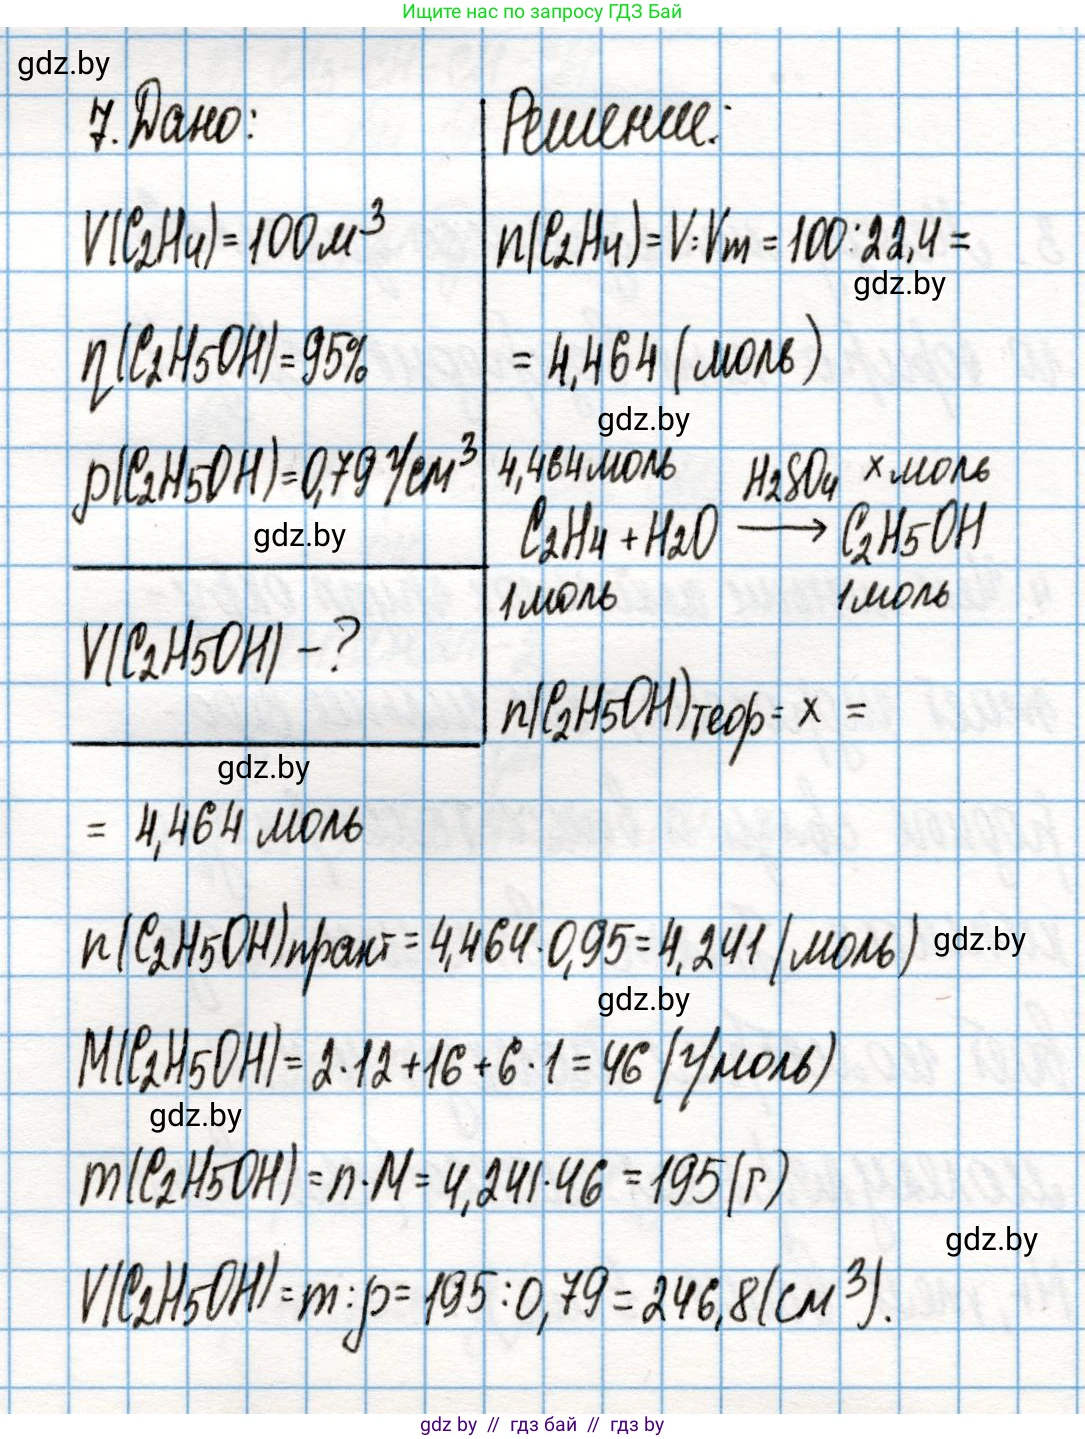 Ищите нас по запросу ГДЗ Бай
gdz.by
7. Дано:
V(C2H4) = 100 м³
η(C2H5OH) = 95%
ρ(C2H5OH) = 0,79 г/см³
gdz.by
V(C2H5OH) - ?
gdz.by
Решение:
n(C2H4) = V : Vm = 100 : 22,4 =
gdz.by
= 4,464 (моль)
gdz.by
4,464 моль H2SO4 x моль
C2H4 + H2O ⟶ C2H5OH
1 моль 1 моль
n(C2H5OH)теор = x =
= 4,464 моль
n(C2H5OH)практ = 4,464 · 0,95 = 4,241 (моль)
gdz.by
gdz.by
M(C2H5OH) = 2·12 + 16 + 6·1 = 46 (г/моль)
gdz.by
m(C2H5OH) = n · M = 4,241 · 46 = 195 (г)
gdz.by
V(C2H5OH) = m : ρ = 195 : 0,79 = 246,8 (см³).
gdz by // гдз бай // гдз by